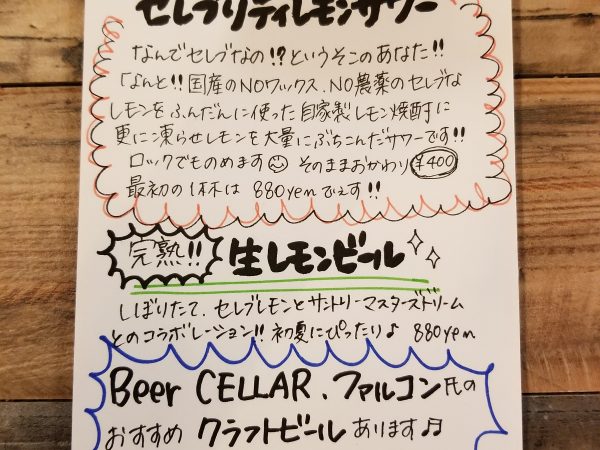 セレブリティレモンサワー
なんでセレブなの!?というそこのあなた!!
「なんと!!国産のNOワックス、NO農薬のセレブな
レモンをふんだんに使った自家製レモン焼酎に
更に凍らせレモンを大量にぶちこんだサワーです!!
ロックでものめます☺ そのままおかわり ¥400
最初の1杯は 880yenでぇす!!
完熟!! 生レモンビール
しぼりたて、セレブレモンとサントリーマスターズドリーム
とのコラボレーション!! 初夏にぴったり♪ 880yen
Beer CELLAR、ファルコン氏の
おすすめ クラフトビール あります♫